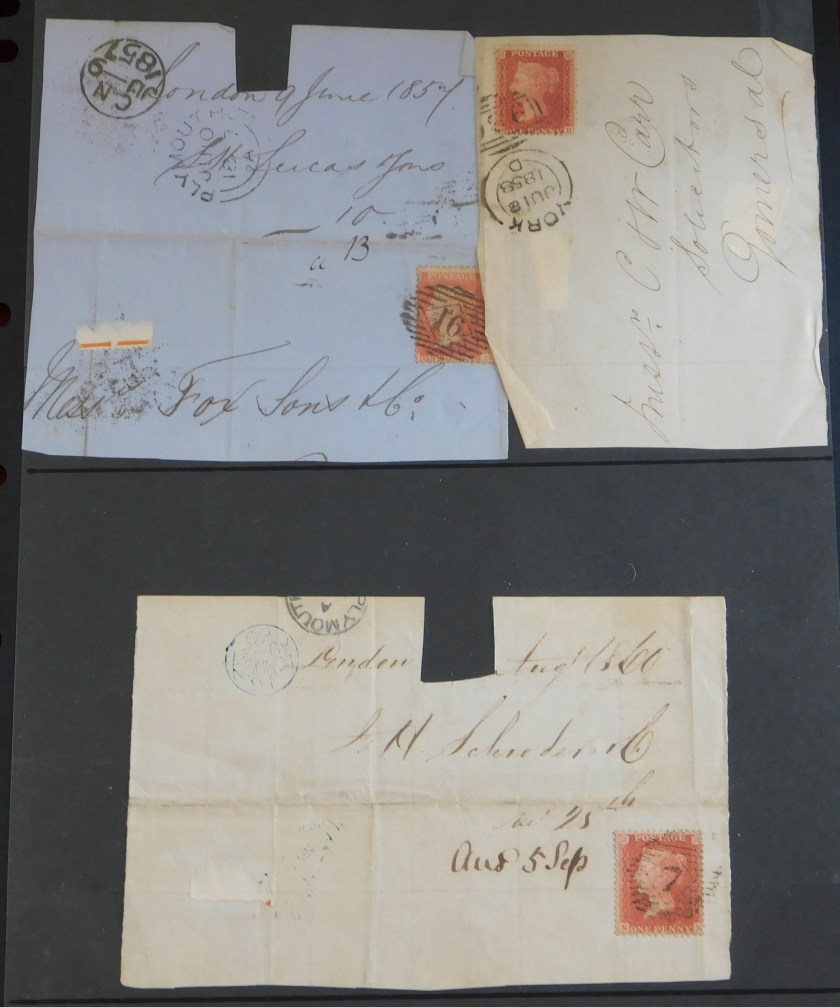 CN
9
JU
1857
London 9 June 1857
PLYMOUTH
JU 10
1857
Lucas Sons
10
a 13
POSTAGE
16
Fox Sons & Co.
POSTAGE
ONE PENNY
YORK
JU 18
1858
D
Messrs C & W Carr
Solicitors
Gomersal
PLYMOUTH
A
London Aug 1860
J H Schroder & C
25th
Aug 5 Sep
POSTAGE
7
ONE PENNY